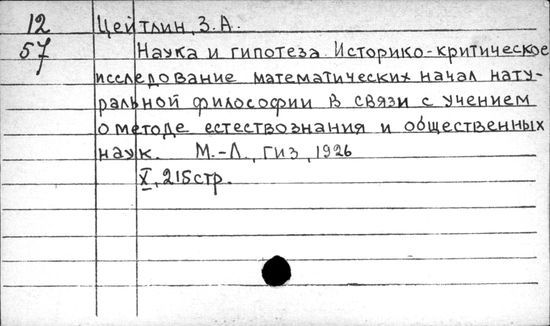 12 Цейтлин, З. А.
57 Наука и гипотеза. Историко-критическое
исследование математических начал нату-
ральной философии в связи с учением
о методе естествознания и общественных
наук. М.-Л., ГИЗ, 1926
X, 215 стр.